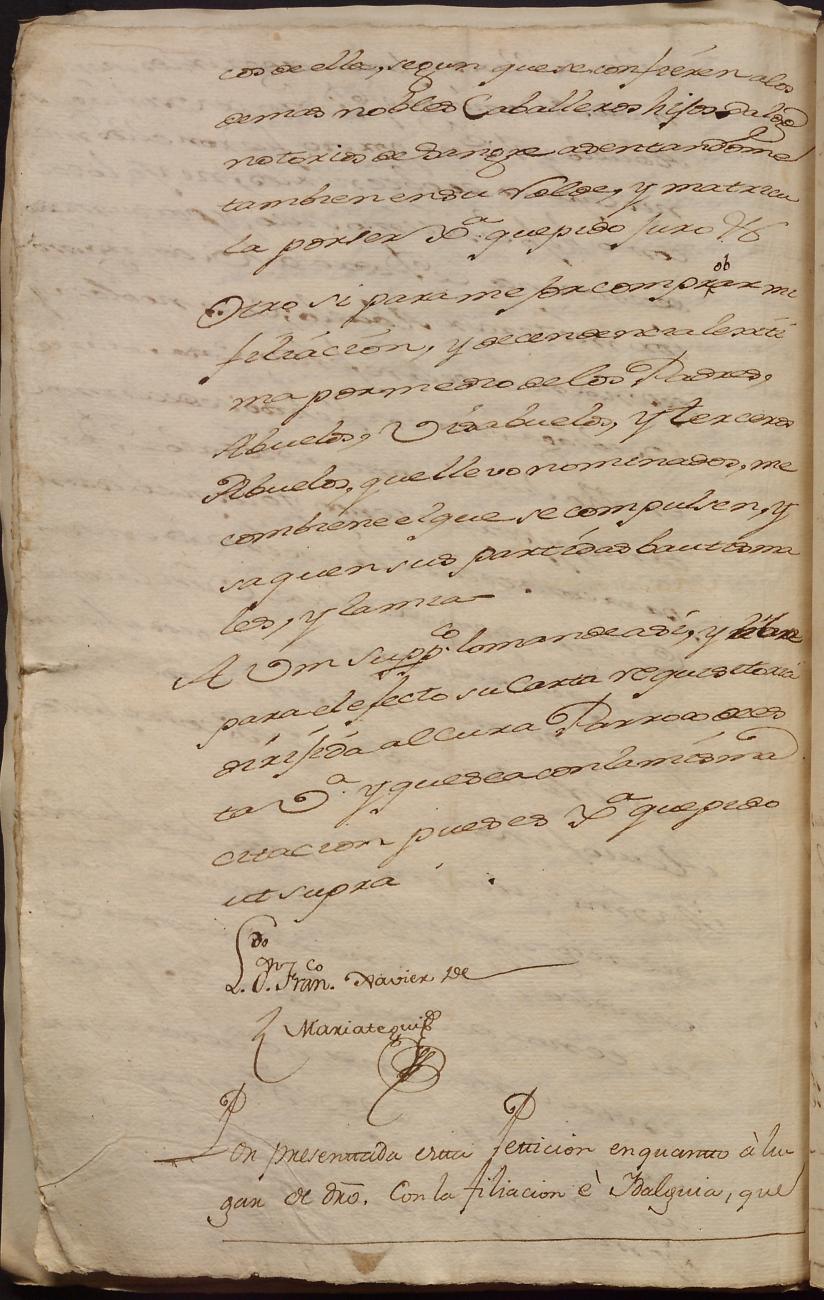 cos de ella, segun que se confieren a los
demas nobles Caballeros hijosdalgo
notorios de Sangre asentandome
tambien en su Rolde, y matricu
la por ser Xa. que pido juro &
Otro si para mejor comprobar mi
filiación, y decendencia lexiti
ma por medio de los Padres,
Abuelos, Visabuelos, y terceros
Abuelos, que llevo nominados, me
combiene el que se compulsen, y
saquen sus partidas bautisma
les, y la mia
A Vm suppco. lo mande asi, y libre
para el efecto su Carta requisitoria
dirijida al Cura Parroco de es
ta Va. y que sea con la misma
citacion pues es Xa. que pido
ut supra
Ldo. Dn. Franco. Xavier de
Mariategui
Por presentada esta Peticion en quanto à lu
gar de dro. Con la filiacion è Idalguia, que